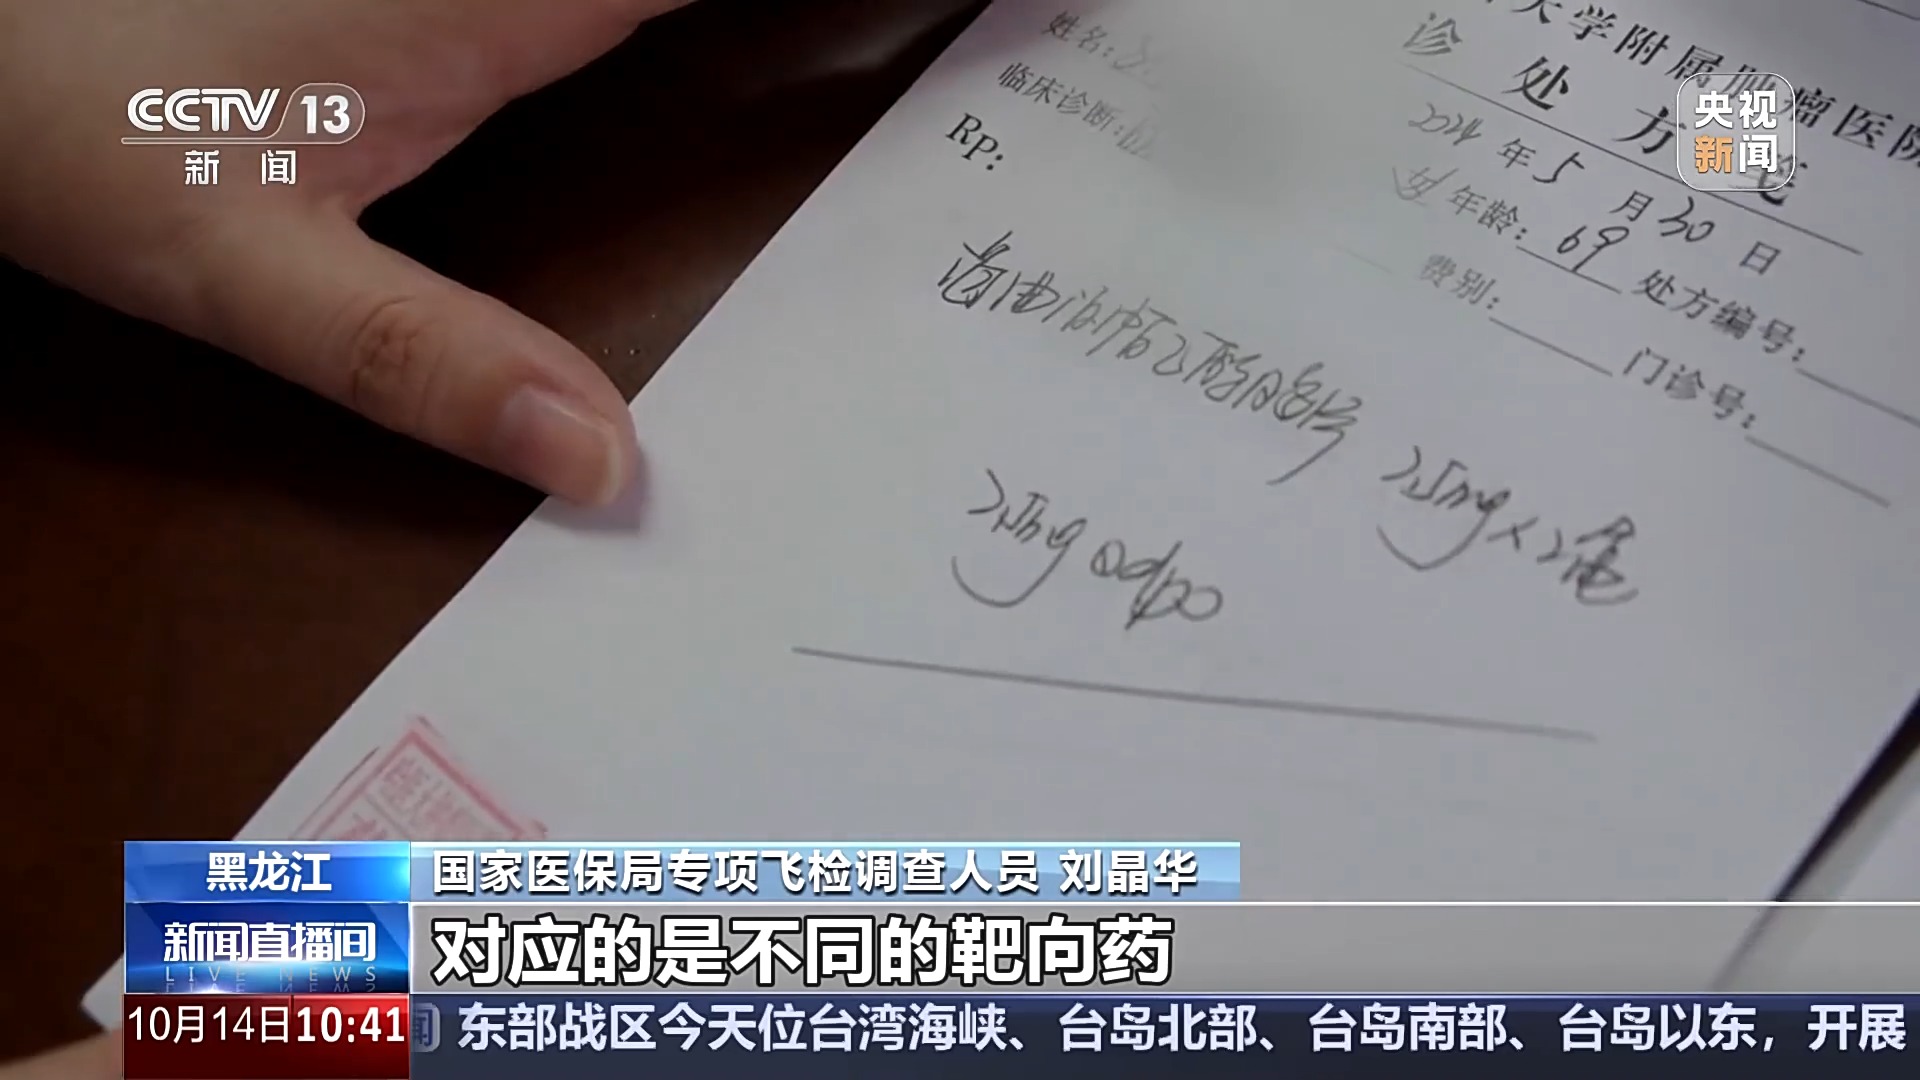 CCTV 13
新闻
央视
新闻
大学附属肿瘤医院
诊处方笺
2024年5月30日
姓名:
女 年龄: 69 处方编号:
临床诊断:
费别: 门诊号:
Rp:
海曲泊帕乙醇胺片 2.5mg×2盒
2.5mg qd po
黑龙江
国家医保局专项飞检调查人员 刘晶华
新闻直播间
LIVE NEWS
对应的是不同的靶向药
10月14日10:41
闻 东部战区今天位台湾海峡、台岛北部、台岛南部、台岛以东，开展